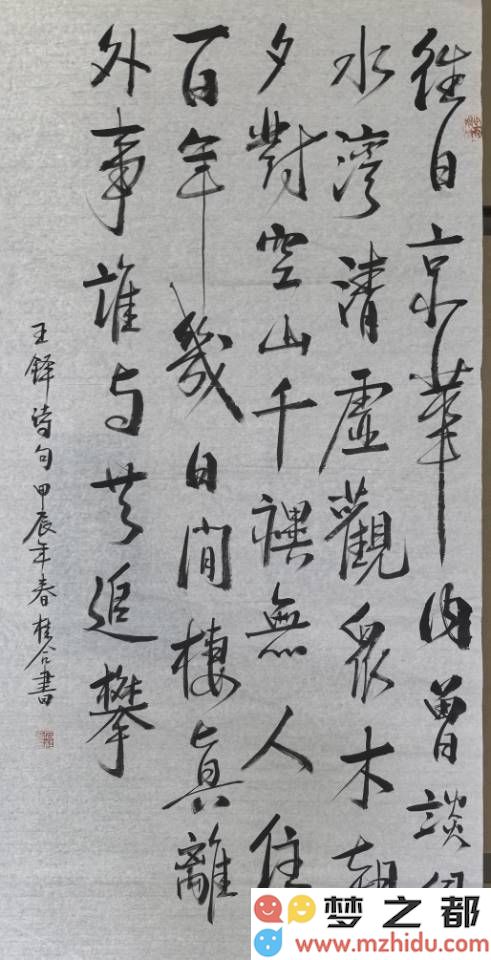 往日京華内曾談
水灣清虛觀眾木朝
夕對空山千禩無人住
百年幾日閒棲真離
外事誰与共追攀
王鐸詩句甲辰年春桂合書
梦之都
www.mzhidu.com